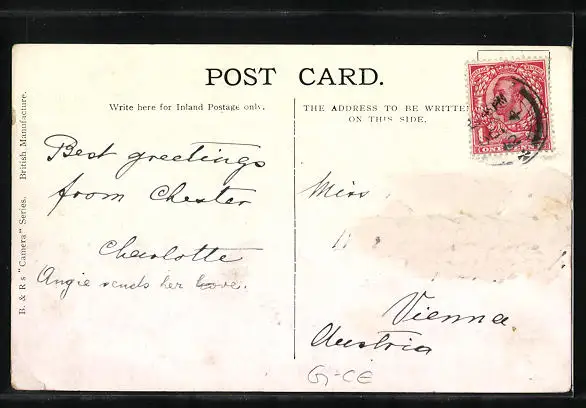 POST CARD.
Write here for Inland Postage only.
THE ADDRESS TO BE WRITTEN
ON THIS SIDE.
B. & R's "Camera" Series. British Manufacture.
Best greetings
from Chester
Charlotte
Angie sends her love.
Miss
Vienna
Austria
G-CE
ONE PENNY